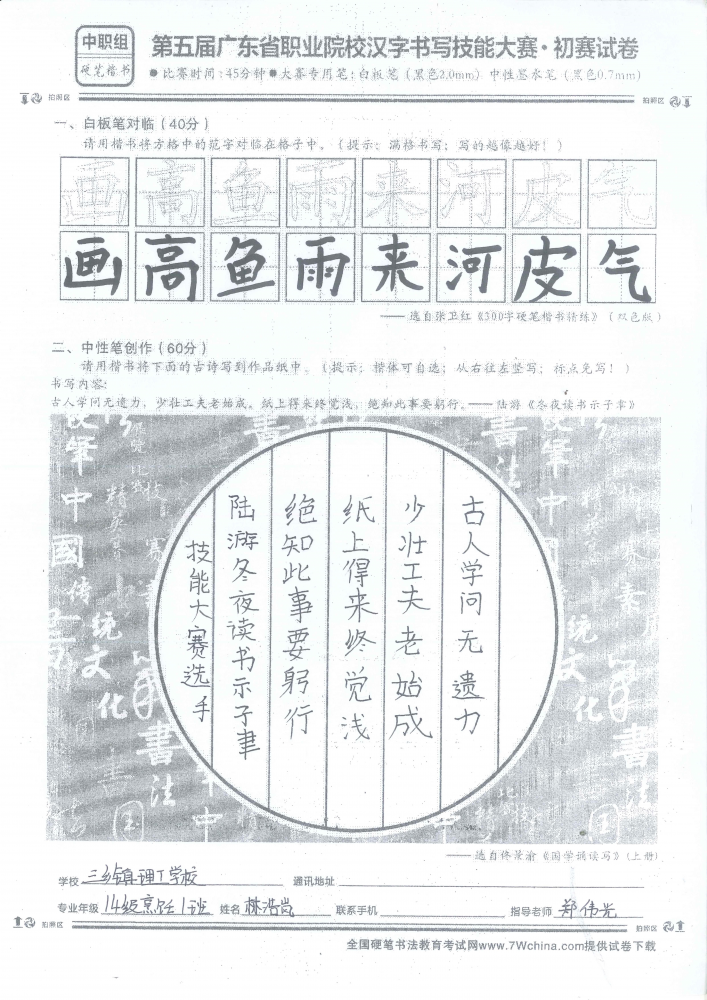 中职组
硬笔楷书
第五届广东省职业院校汉字书写技能大赛·初赛试卷
●比赛时间：45分钟●大赛专用笔：白板笔（黑色2.0mm）中性墨水笔（黑色0.7mm）
拍照区
拍照区
一、白板笔对临（40分）
请用楷书将方格中的范字对临在格子中。（提示：满格书写；写的越像越好！）
画高鱼雨来河皮气
画高鱼雨来河皮气
——选自张卫红《300字硬笔楷书精练》（双色版）
二、中性笔创作（60分）
请用楷书将下面的古诗写到作品纸中。（提示：楷体可自选；从右往左竖写；标点免写！）
书写内容：
古人学问无遗力，少壮工夫老始成。纸上得来终觉浅，绝知此事要躬行。——陆游《冬夜读书示子聿》
古人学问无遗力
少壮工夫老始成
纸上得来终觉浅
绝知此事要躬行
陆游冬夜读书示子聿
技能大赛选手
——选自佟景渝《国学诵读写》（上册）
学校 三乡镇理工学校 通讯地址
专业年级 14级烹饪1班 姓名 林浩岚 联系手机 指导老师 郑伟光
拍照区
拍照区
全国硬笔书法教育考试网www.7Wchina.com提供试卷下载